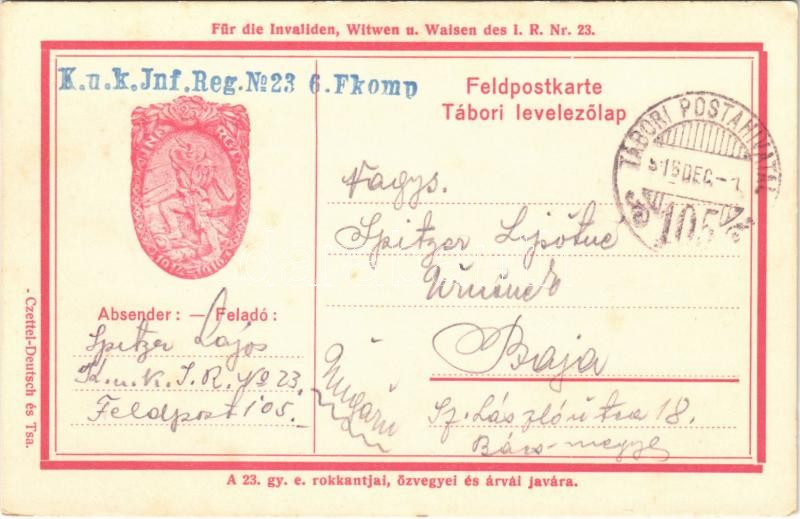 Für die Invaliden, Witwen u. Waisen des I. R. Nr. 23.
K.u.k.Jnf.Reg.№23 6.Fkomp
Feldpostkarte
Tábori levelezőlap
TÁBORI POSTAHIVATAL
105
1914-1916
Nagys.
Spitzer
Úrnőnek
Baja
Sz. László utca 18.
Bács-megye
Ungarn
Absender: — Feladó:
Spitzer Lajos
K.u.K. I.R. № 23.
Feldpost 105.
- Czettel-Deutsch és Tsa.
A 23. gy. e. rokkantjai, özvegyei és árvái javára.